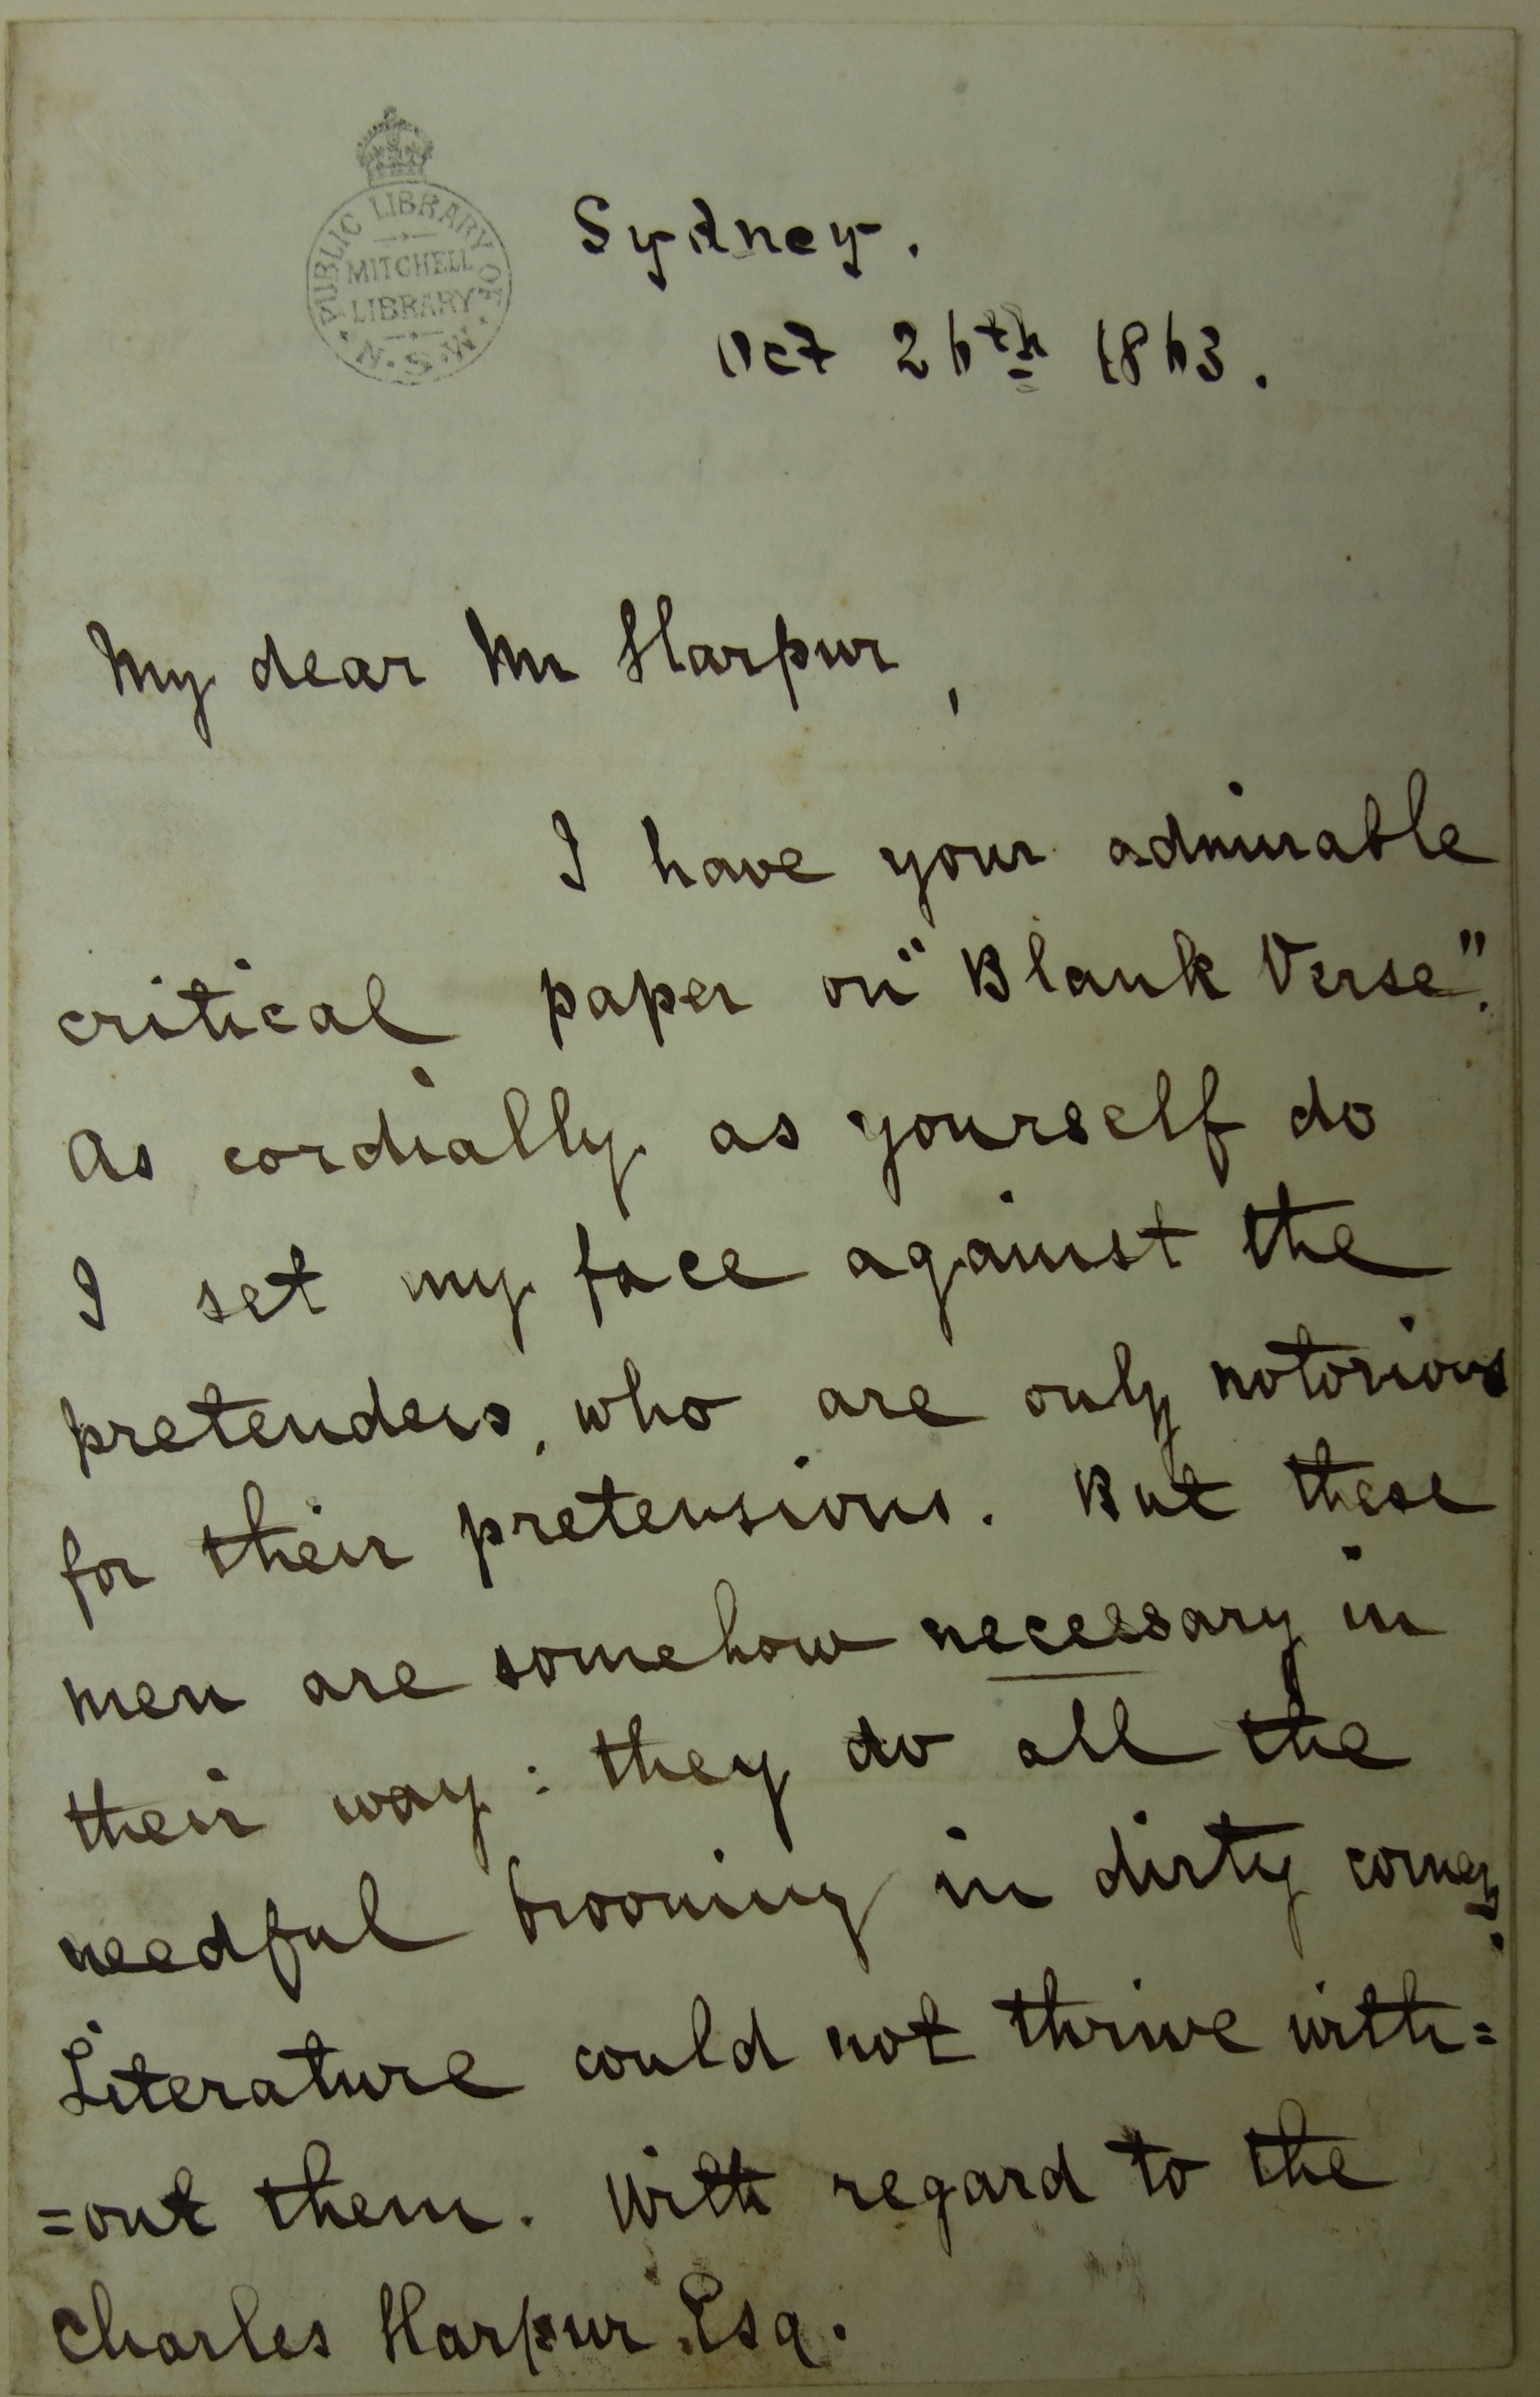 PUBLIC LIBRARY OF N.S.W.
MITCHELL
LIBRARY
Sydney.
Oct 26th 1863.
My dear Mr Harpur,
I have your admirable
critical paper on "Blank Verse".
As cordially as yourself do
I set my face against the
pretenders, who are only notorious
for their pretensions. But these
men are somehow necessary in
their way: they do all the
needful brooming in dirty corners.
Literature could not thrive with=
=out them. With regard to the
Charles Harpur Esq.